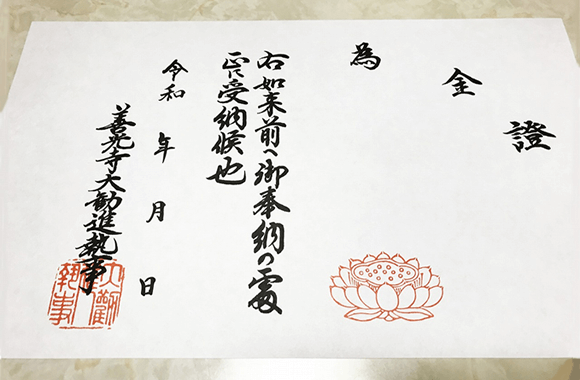 證
金
為
右如来前へ御奉納の處
正に受納候也
令和 年 月 日
善光寺大勧進執事
大勸進執事